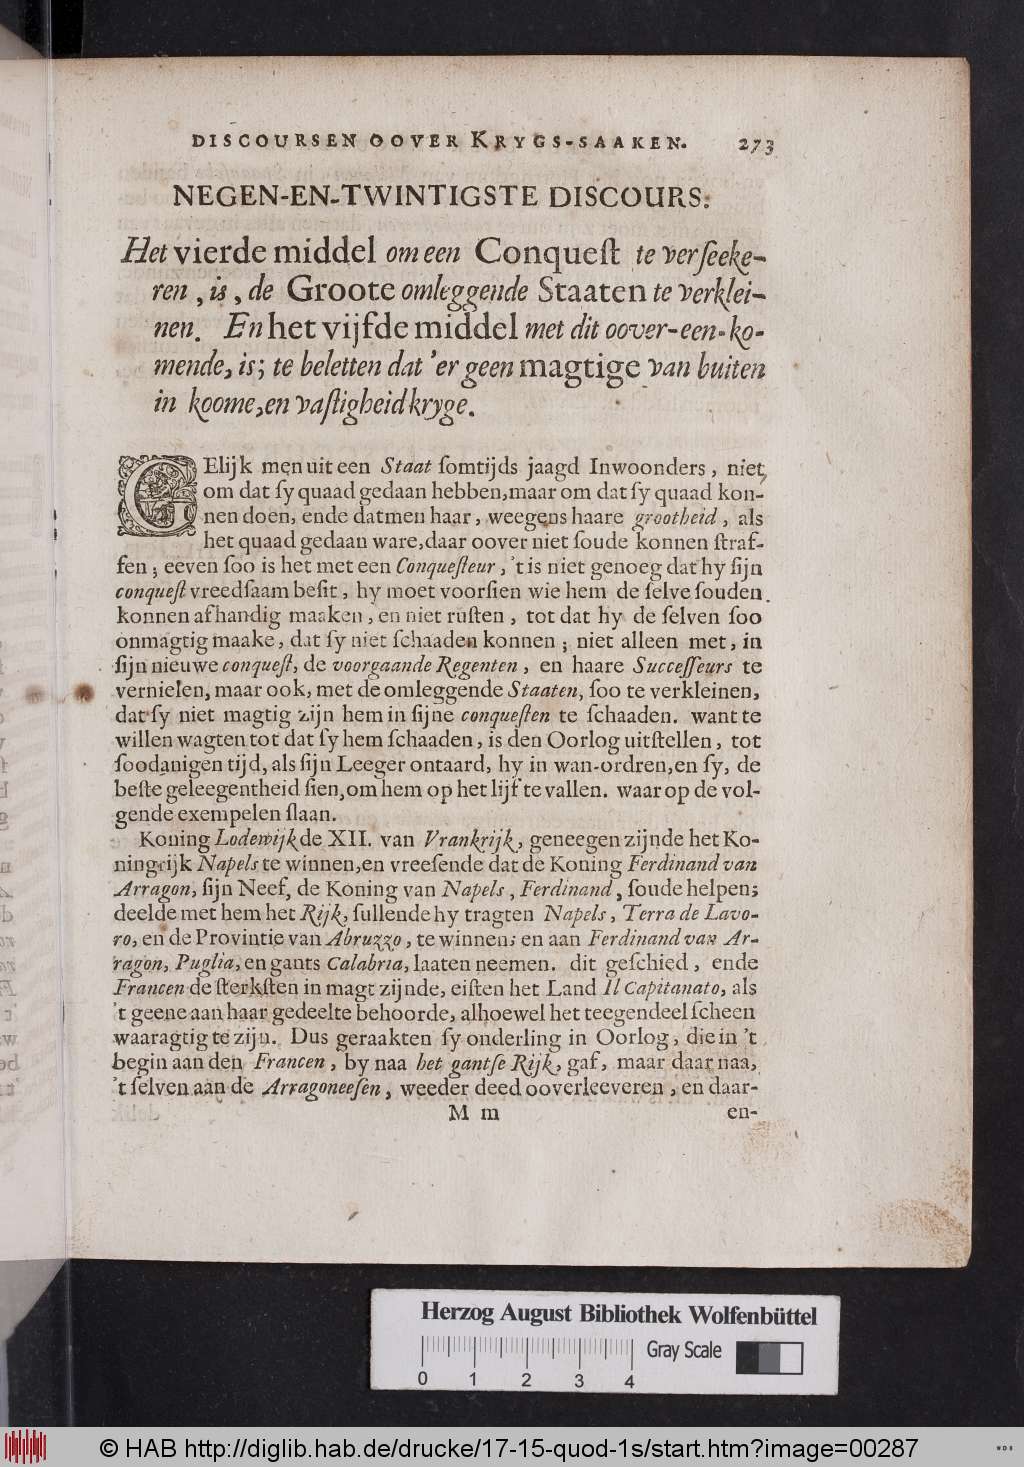 DISCOURSEN OOVER KRYGS-SAAKEN. 273
NEGEN-EN-TWINTIGSTE DISCOURS.
Het vierde middel om een Conqueſt te verſeeke-
ren, is, de Groote omleggende Staaten te verklei-
nen. En het vijfde middel met dit oover-een-ko-
mende, is; te beletten dat 'er geen magtige van buiten
in koome, en vaſtigheid kryge.
GElijk men uit een Staat ſomtijds jaagd Inwoonders, niet
om dat ſy quaad gedaan hebben, maar om dat ſy quaad kon-
nen doen, ende datmen haar, weegens haare grootheid, als
het quaad gedaan ware, daar oover niet ſoude konnen ſtraf-
fen; eeven ſoo is het met een Conqueſteur, 't is niet genoeg dat hy ſijn
conqueſt vreedſaam beſit, hy moet voorſien wie hem de ſelve ſouden
konnen afhandig maaken, en niet ruſten, tot dat hy de ſelven ſoo
onmagtig maake, dat ſy niet ſchaaden konnen; niet alleen met, in
ſijn nieuwe conqueſt, de voorgaande Regenten, en haare Succeſſeurs te
vernielen, maar ook, met de omleggende Staaten, ſoo te verkleinen,
dat ſy niet magtig zijn hem in ſijne conqueſten te ſchaaden. want te
willen wagten tot dat ſy hem ſchaaden, is den Oorlog uitſtellen, tot
ſoodanigen tijd, als ſijn Leeger ontaard, hy in wan-ordren, en ſy, de
beſte geleegentheid ſien, om hem op het lijf te vallen. waar op de vol-
gende exempelen ſlaan.
Koning Lodewijk de XII. van Vrankrijk, geneegen zijnde het Ko-
ningrijk Napels te winnen, en vreeſende dat de Koning Ferdinand van
Arragon, ſijn Neef, de Koning van Napels, Ferdinand, ſoude helpen;
deelde met hem het Rijk, ſullende hy tragten Napels, Terra de Lavo-
ro, en de Provintie van Abruzzo, te winnen; en aan Ferdinand van Ar-
ragon, Puglia, en gants Calabria, laaten neemen. dit geſchied, ende
Francen de ſterkſten in magt zijnde, eiſten het Land Il Capitanato, als
't geene aan haar gedeelte behoorde, alhoewel het teegendeel ſcheen
waaragtig te zijn. Dus geraakten ſy onderling in Oorlog, die in 't
begin aan den Francen, by naa het gantſe Rijk, gaf, maar daar naa,
't ſelven aan de Arragoneeſen, weeder deed ooverleeveren, en daar-
M m en-
Herzog August Bibliothek Wolfenbüttel
Gray Scale
0 1 2 3 4
© HAB http://diglib.hab.de/drucke/17-15-quod-1s/start.htm?image=00287